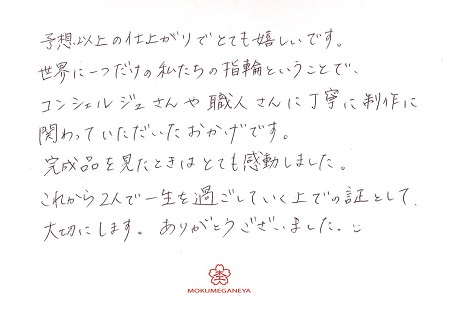 予想以上の仕上がりでとても嬉しいです。
世界に一つだけの私たちの指輪ということで、
コンシェルジュさんや職人さんに丁寧に制作に
関わっていただいたおかげです。
完成品を見たときはとても感動しました。
これから2人で一生を過ごしていく上での証として、
大切にします。ありがとうございました。
MOKUMEGANEYA